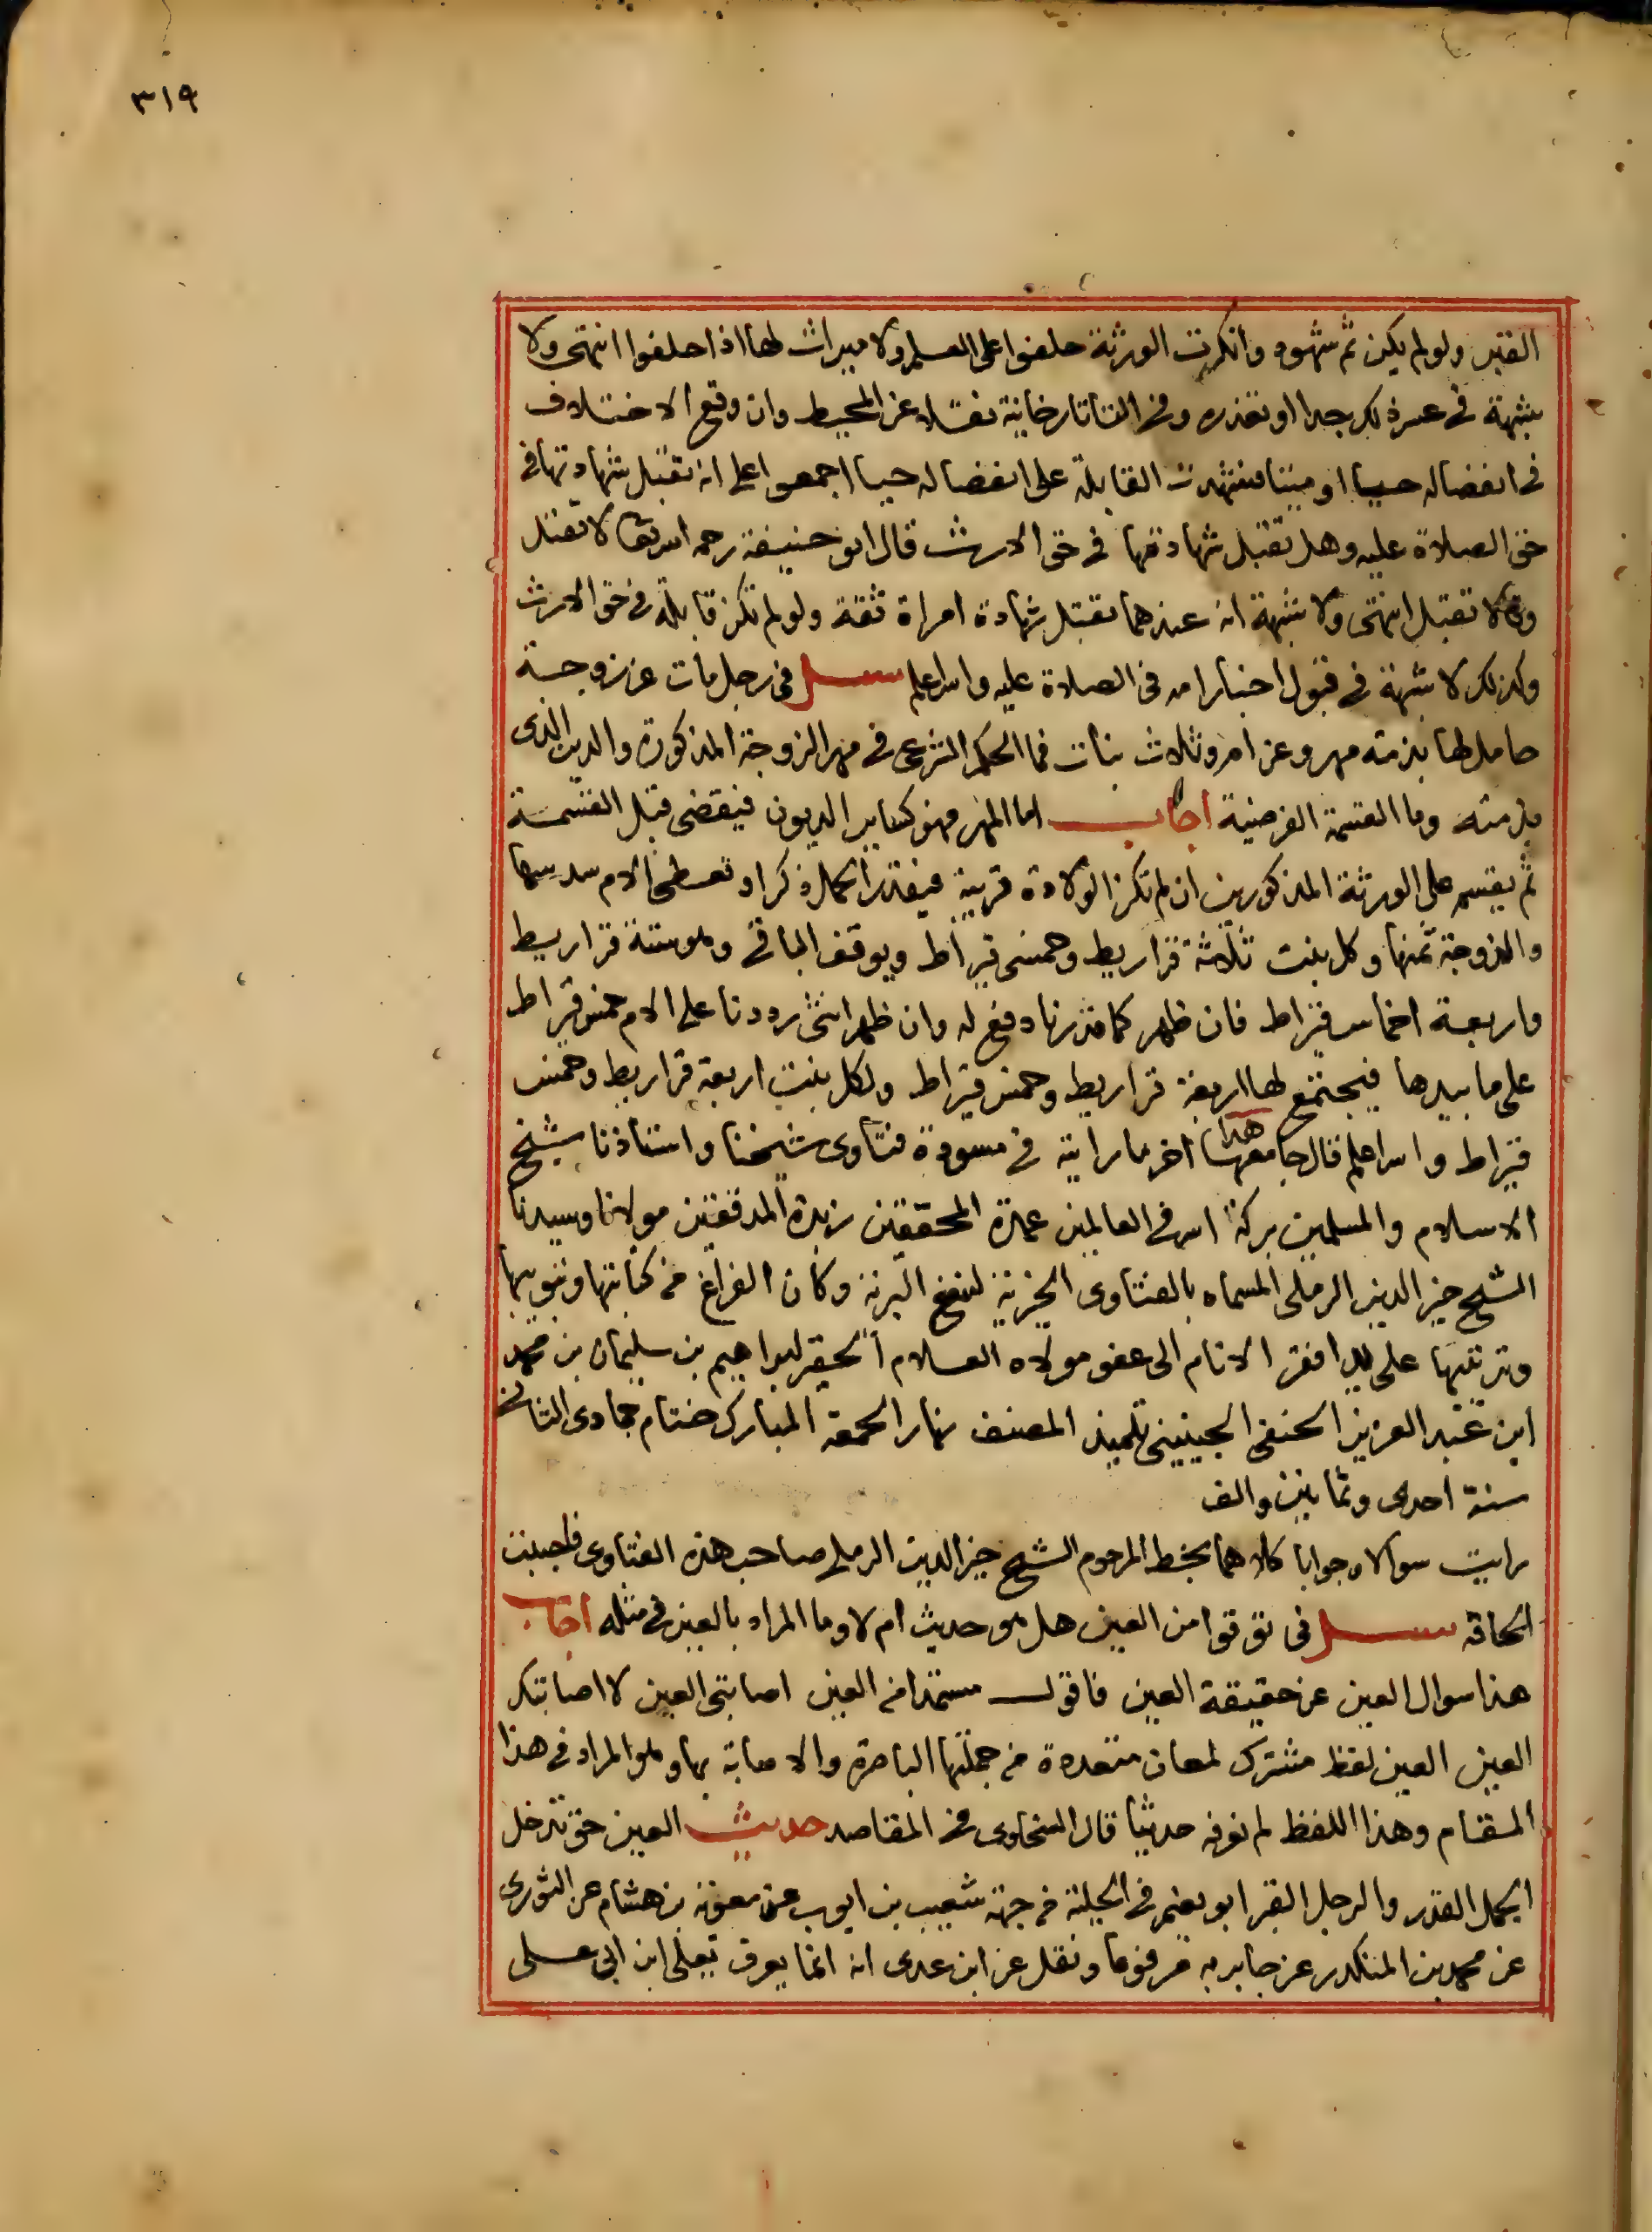 ٣١٩
القبر ولو لم يكن ثم شهود وأنكرت الورثة حلفوا على العلم ولا ميراث لها اذا حلفوا انتهى ولا
شبهة في عسر ذلك جدا او تعذره وفي التاتارخانية نقلا عن المحيط وان وقع الاختلاف
في انفصاله حيا او ميتا فشهدت القابلة على انفصاله حيا اجمعوا على انه تقبل شهادتها في
حق الصلاة عليه وهل تقبل شهادتها في حق الارث قال ابو حنيفة رحمه الله تعالى لا تقبل
وقالا تقبل انتهى ولا شبهة انه عندهما تقبل شهادة امراة ثقة ولو لم تكن قابلة في حق الارث
وكذلك لا شبهة في قبول اخبار امه في الصلاة عليه والله اعلم سئل في رجل مات عن زوجة
حامل لها بذمته مهر وعن ام وثلاث بنات فما الحكم الشرعي في مهر الزوجة المذكورة والدين الذي
بذمته وما القسمة الفرضية اجاب اما المهر فهو كساير الديون فيقضى قبل القسمة
ثم يقسم على الورثة المذكورين ان لم تكن الولادة قريبة فيقدر الحمل ذكرا وتعطى الام سدسها
والزوجة ثمنها وكل بنت ثلاثة قراريط وخمسي قيراط ويوقف الباقي وهو ستة قراريط
واربعة اخماس قيراط فان ظهر كما قدرنا دفع له وان ظهر انثى رددنا على الام خمس قيراط
على ما بيدها فيجتمع لها اربعة قراريط وخمس قيراط ولكل بنت اربعة قراريط وخمس
قيراط والله اعلم قال جامعها هذا اخر ما رايته في مسودة فتاوى شيخنا واستاذنا شيخ
الاسلام والمسلمين بركة الله في العالمين عمدة المحققين زبدة المدققين مولانا وسيدنا
الشيخ خير الدين الرملي المسماه بالفتاوى الخيرية لنفع البرية وكان الفراغ من كتابتها وتبويبها
وترتيبها على يد افقر الانام الى عفو مولاه السلام الحقير ابراهيم بن سليمان بن محمد
ابن عبد العزيز الحنفي الجينيني تلميذ المصنف نهار الجمعة المبارك ختام جمادى الثاني
سنة احدى وثمانين والف
رايت سوالا وجوابا كلاهما بخط المرحوم الشيخ خير الدين الرملي صاحب هذه الفتاوى فاحببت
الحاقه سئل في توقوا من العين هل هو حديث ام لا وما المراد بالعين في مثله اجاب
هذا سوال العين عن حقيقة العين فاقول مستمدا من العين اصابتي العين لا اصابتك
العين العين لفظ مشترك لمعان متعددة من جملتها الباصرة والاصابة بها وهو المراد في هذا
المقام وهذا اللفظ لم نعرفه حديثا قال السخاوي في المقاصد حديث العين حق تدخل
الجمل القدر والرجل القبر ابو نعيم في الحلية من جهة شعيب بن ايوب عن معوية بن هشام عن الثوري
عن محمد بن المنكدر عن جابر به مرفوعا ونقل عن ابن عدي انه انما يعرف بعلي ابن ابي علي